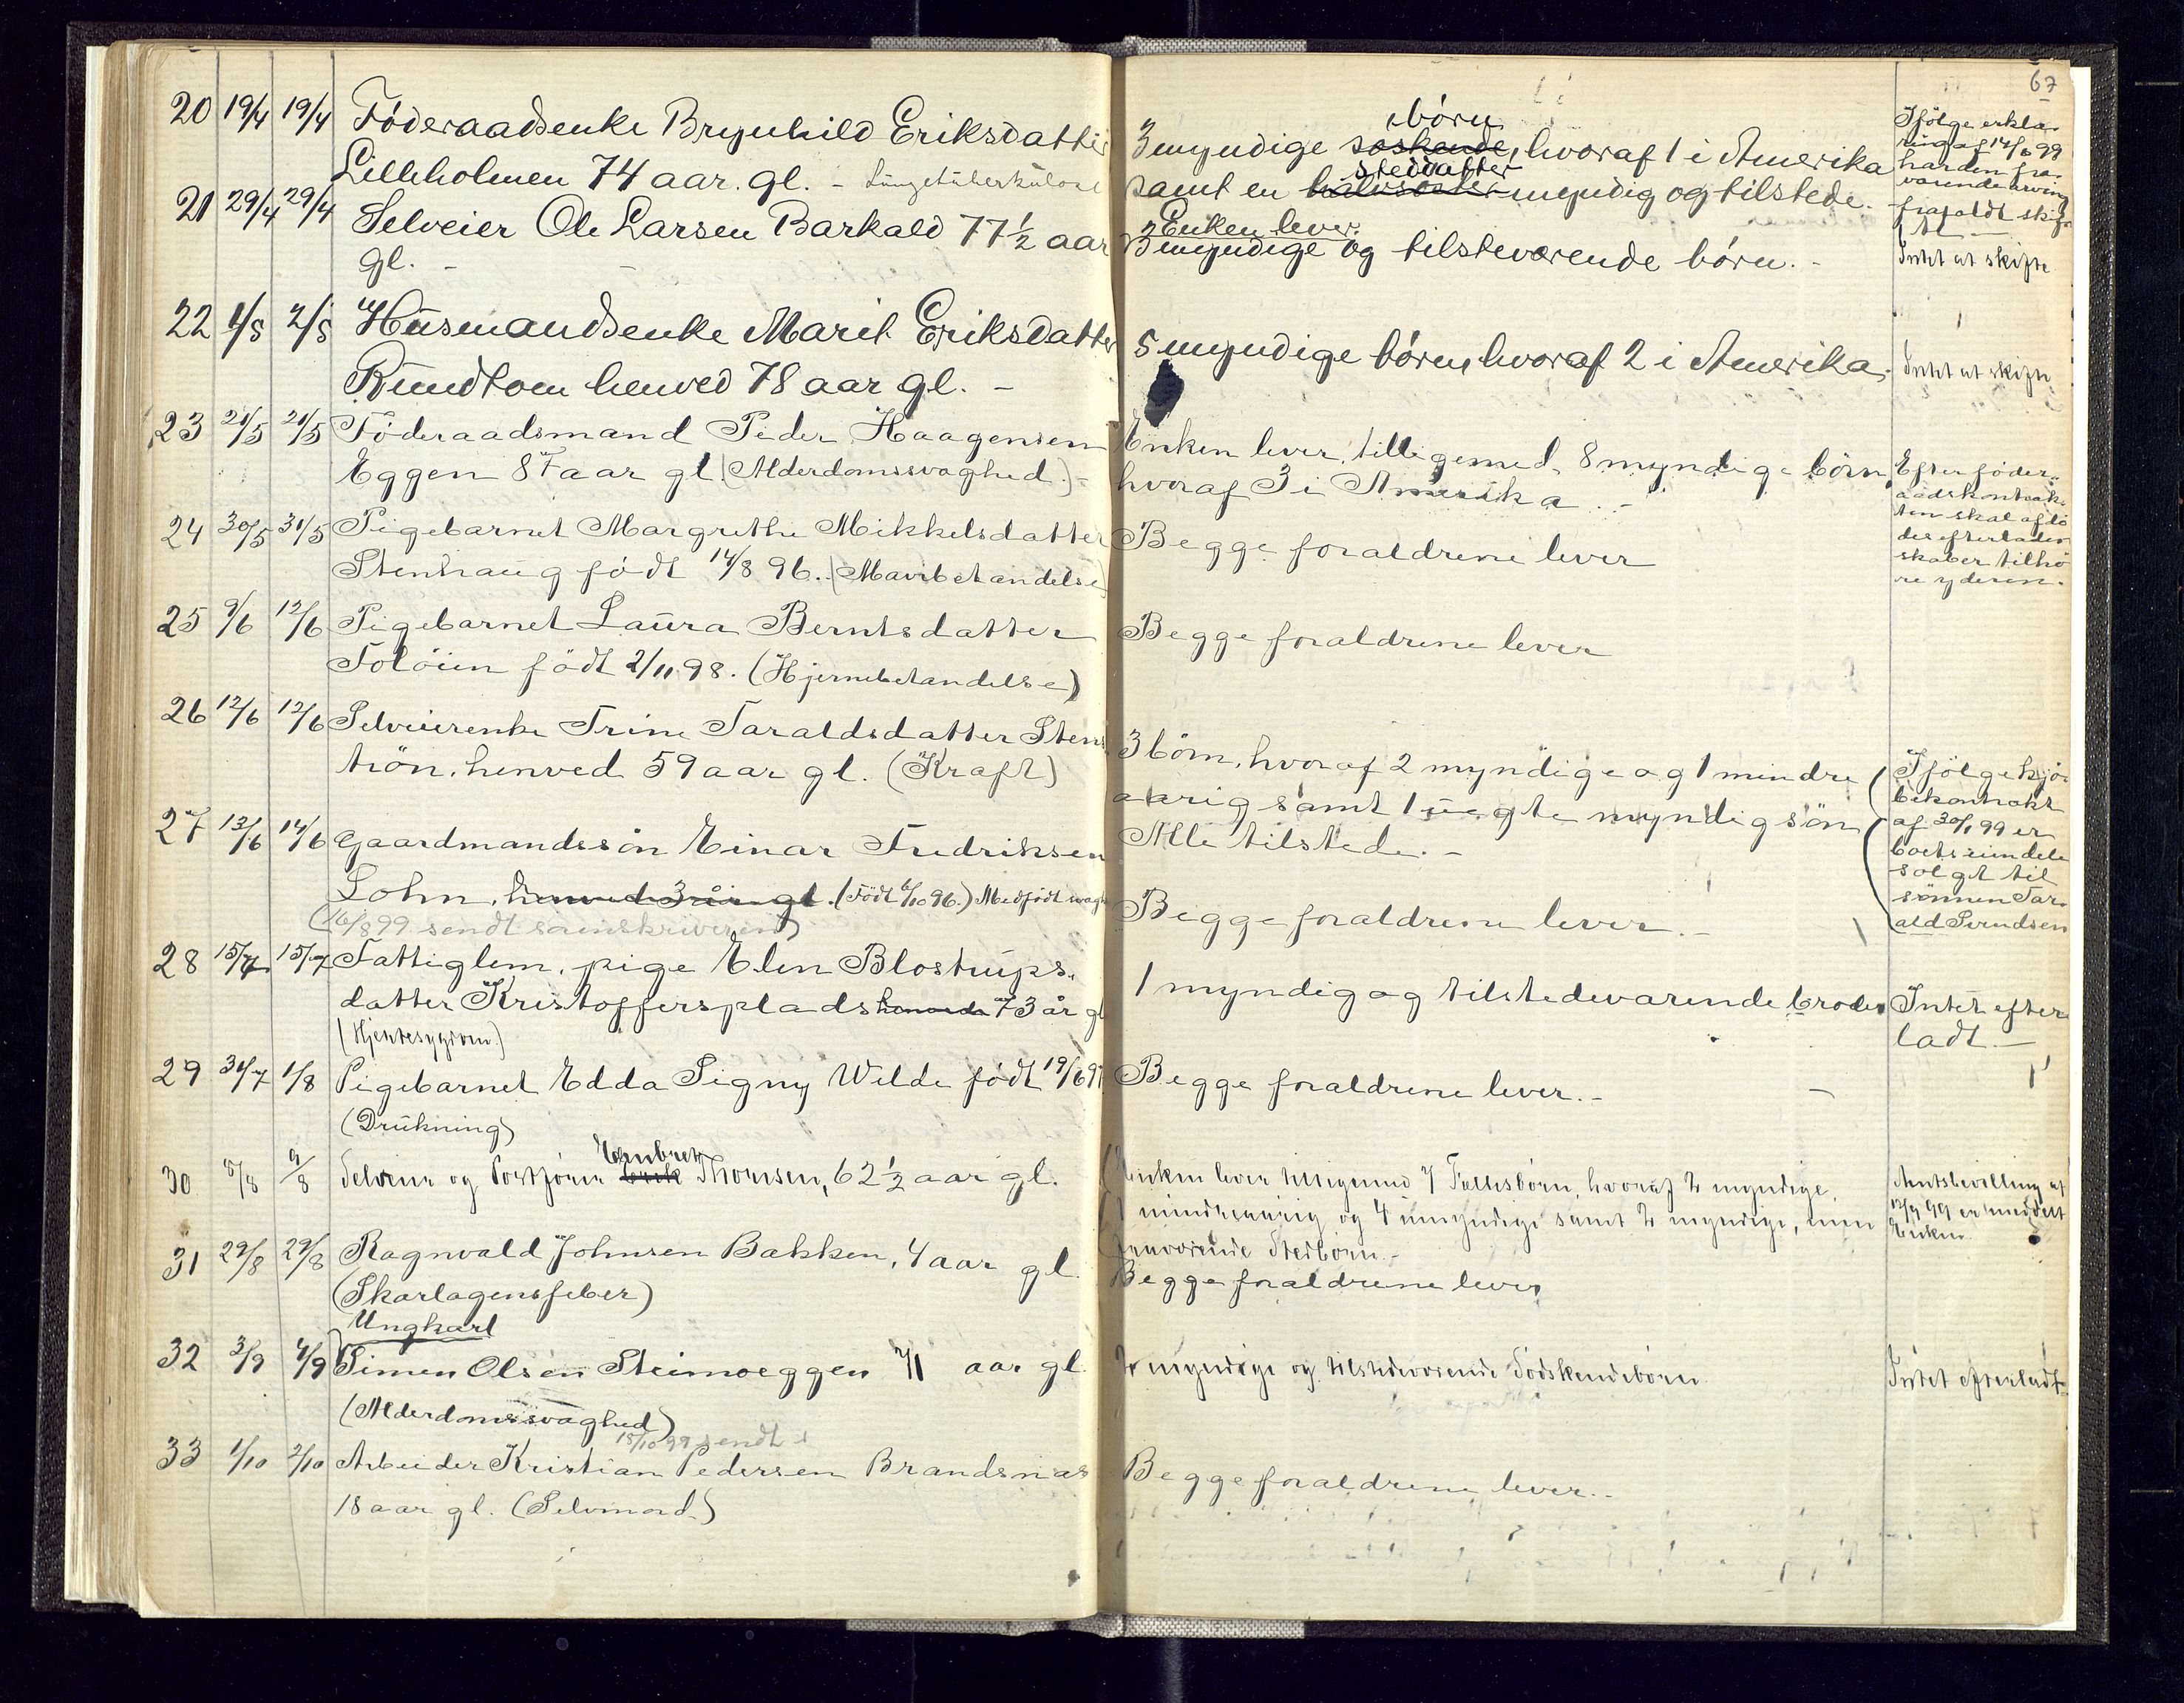 67
20 19/4 19/4 Föderaadsenke Brynhild Eriksdatter
Lilleholmen 74 aar. gl. - Lungetuberkulose
börn
3 myndige søskende, hvoraf 1 i Amerika
steddatter
samt en halvsøster myndig og tilstede.
Ifölge erklæ-
ring af 14/6 99
har den fra-
værende arving
frafaldt skif-
te
21 29/4 29/4 Selveier Ole Larsen Barkald 77½ aar
gl. -
Enken lever.
3 myndige og tilsteværende börn. -
Intet at skifte
22 1/5 2/5 Husmandsenke Marit Eriksdatter
Rundtom henved 78 aar gl. -
5 myndige börn, hvoraf 2 i Amerika.
Intet at skifte
23 21/5 21/5 Föderaadsmand Peder Haagensen
Eggen 87 aar gl. (Alderdomssvaghed.) -
Enken lever tilligemed 8 myndige börn,
hvoraf 3 i Amerika. -
Efter föder-
aadskontrak-
ten skal afdö
des efterladen
skaber tilhö
re yderen.
24 30/5 31/5 Pigebarnet Margrethe Mikkelsdatter
Stenhaug födt 14/8 96. (Mavebetændelse)
Begge forældrene lever
25 9/6 12/6 Pigebarnet Laura Berntsdatter
Tolöien födt 2/11 98. (Hjernebetændelse)
Begge forældrene lever
26 12/6 12/6 Selveierenke Trine Taraldsdatter Stens
trön, henved 59 aar gl. (Kræft)
3 börn, hvoraf 2 myndige og 1 mindre
aarig samt 1 uægte myndig sön
Alle tilstede. -
Ifölge kjö-
bekontrakt
af 30/1 99 er
boets eiendele
solgt til
sönnen Tar-
ald Svendsen
27 13/6 14/6 Gaardmandssön Einar Fredriksen
Lohn, henved 3 år gl. (Födt 6/10 96.) Medfödt svagh
(16/8 99 sendt sorenskriveren)
Begge forældrene lever. -
28 15/7 15/7 Fattiglem, pige Elen Blostrups-
datter Kristoffersplads henved 73 år gl
(Hjertesygdom.)
1 myndig og tilstedeværende broder
Intet efter
ladt. -
29 31/7 1/8 Pigebarnet Edda Signy Wilde födt 19/6 97
(Drukning)
Begge forældrene lever. -
30 5/8 9/8 Selveier og Postförer Erik Thomsen, 62½ aar gl.
Embret
Enken lever tilligemed 7 Fællesbörn, hvoraf 2 myndige,
1 mindreaarig og 4 umyndige samt 2 myndige, men
fraværende Stedbörn. -
Amtsbevilling af
12/9 99 er meddelt
Enken
31 29/8 29/8 Ragnvald Johnsen Bakken, 4 aar gl.
(Skarlagensfeber)
Begge forældrene lever
Ungkarl
32 3/9 4/9 Simen Olsen Steimoeggen 71 aar gl.
(Alderdomssvaghed)
2 myndige og tilstedeværende Södskendebörn
Intet efterladt
15/10 99 sendt
33 1/10 2/10 Arbeider Kristian Pedersen Brandsnæs
18 aar gl. (Selvmord.)
Begge forældrene lever. -